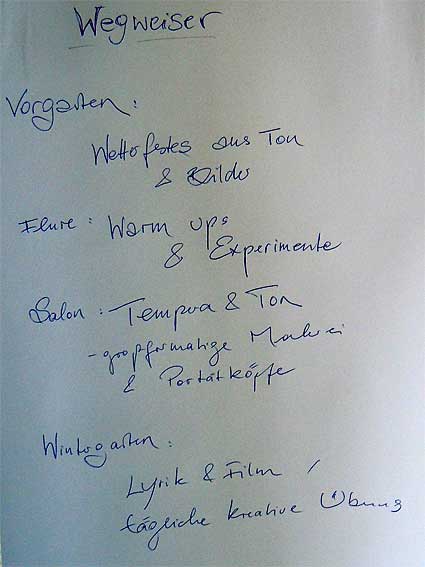 Wegweiser
Vorgarten :
Wetterfestes aus Ton
& Bilder
Flure : Warm ups
& Experimente
Salon : Tempera & Ton
- großformatige Malerei
& Portätköpfe
Wintergarten :
Lyrik & Film /
tägliche kreative Übung